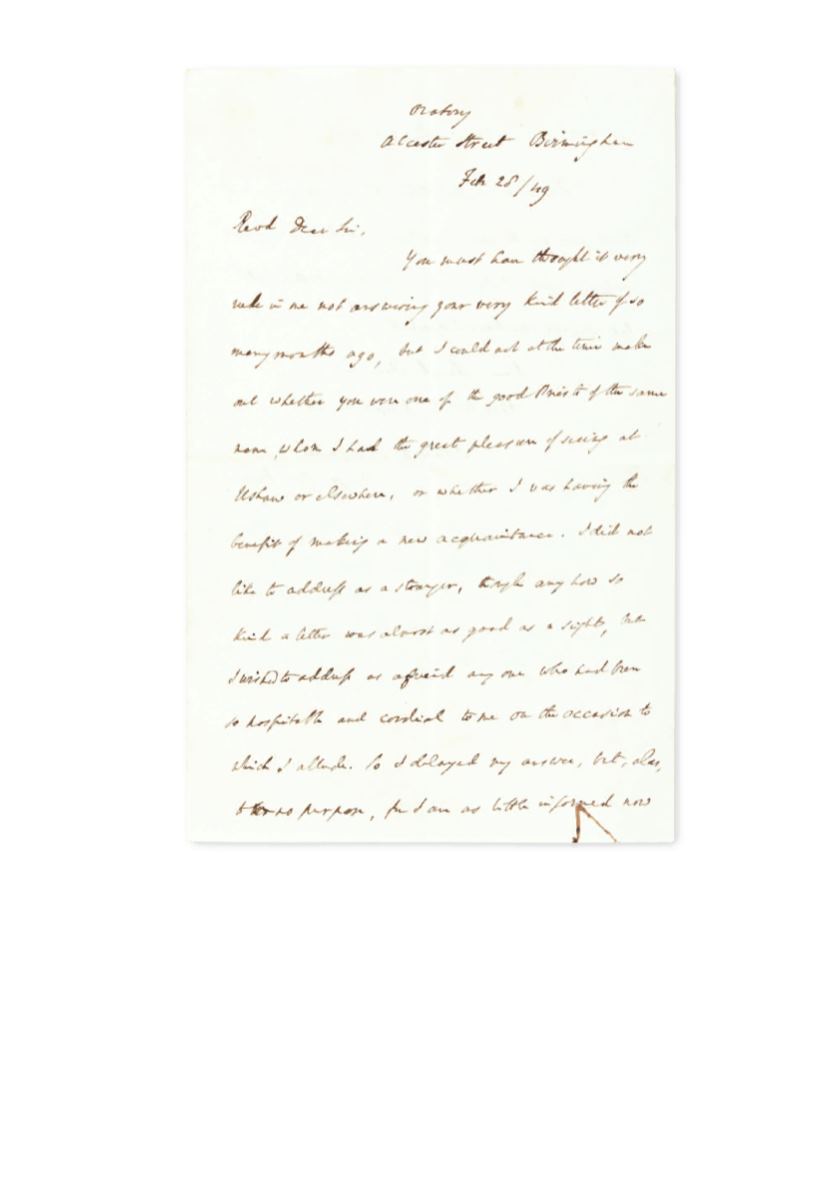 Oratory
Alcester Street Birmingham
Feb 28/49
Revd Dear Sir,
You must have thought it very
rude in me not answering your very kind letter of so
many months ago, but I could not at the time make
out whether you were one of the good Priests of the same
name, whom I had the great pleasure of seeing at
Ushaw or elsewhere, or whether I was having the
benefit of making a new acquaintance. I did not
like to address as a stranger, though any how so
kind a letter was almost as good as a sight, but
I wished to address as a friend any one who had been
so hospitable and cordial to me on the occasion to
which I allude. So I delayed my answer, but, alas,
to no purpose, for I am as little informed now